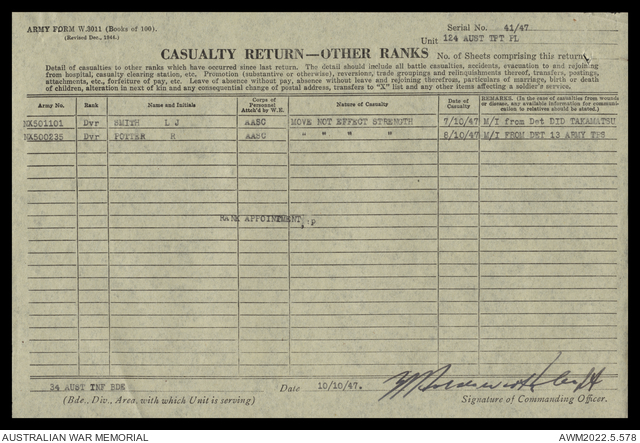 ARMY FORM W.3011 (Books of 100).
(Revised Dec., 1944.)
Serial No. 41/47
Unit 124 AUST TPT PL
CASUALTY RETURN—OTHER RANKS
No. of Sheets comprising this return
Detail of casualties to other ranks which have occurred since last return. The detail should include all battle casualties, accidents, evacuation to and rejoining
from hospital, casualty clearing station, etc. Promotion (substantive or otherwise), reversions, trade groupings and relinquishments thereof, transfers, postings,
attachments, etc., forfeiture of pay, etc. Leave of absence without pay, absence without leave and rejoining therefrom, particulars of marriage, birth or death
of children, alteration in next of kin and any consequential change of postal address, transfers to "X" list and any other items affecting a soldier's service.
Army No. Rank Name and Initials Corps of Personnel Attch'd by W.E. Nature of Casualty Date of Casualty REMARKS. (In the case of casualties from wounds or disease, any available information for communication to relatives should be stated.)
NX501101 Dvr SMITH L J AASC MOVE NOT EFFECT STRENGTH 7/10/47 M/I from Det DID TAKAMATSU
NX500235 Dvr POTTER R AASC " " " " 8/10/47 M/I FROM DET 13 ARMY TPS
RANK APPOINTMENT
34 AUST INF BDE
(Bde., Div., Area, with which Unit is serving)
Date 10/10/47.
Signature of Commanding Officer.
AUSTRALIAN WAR MEMORIAL
AWM2022.5.578